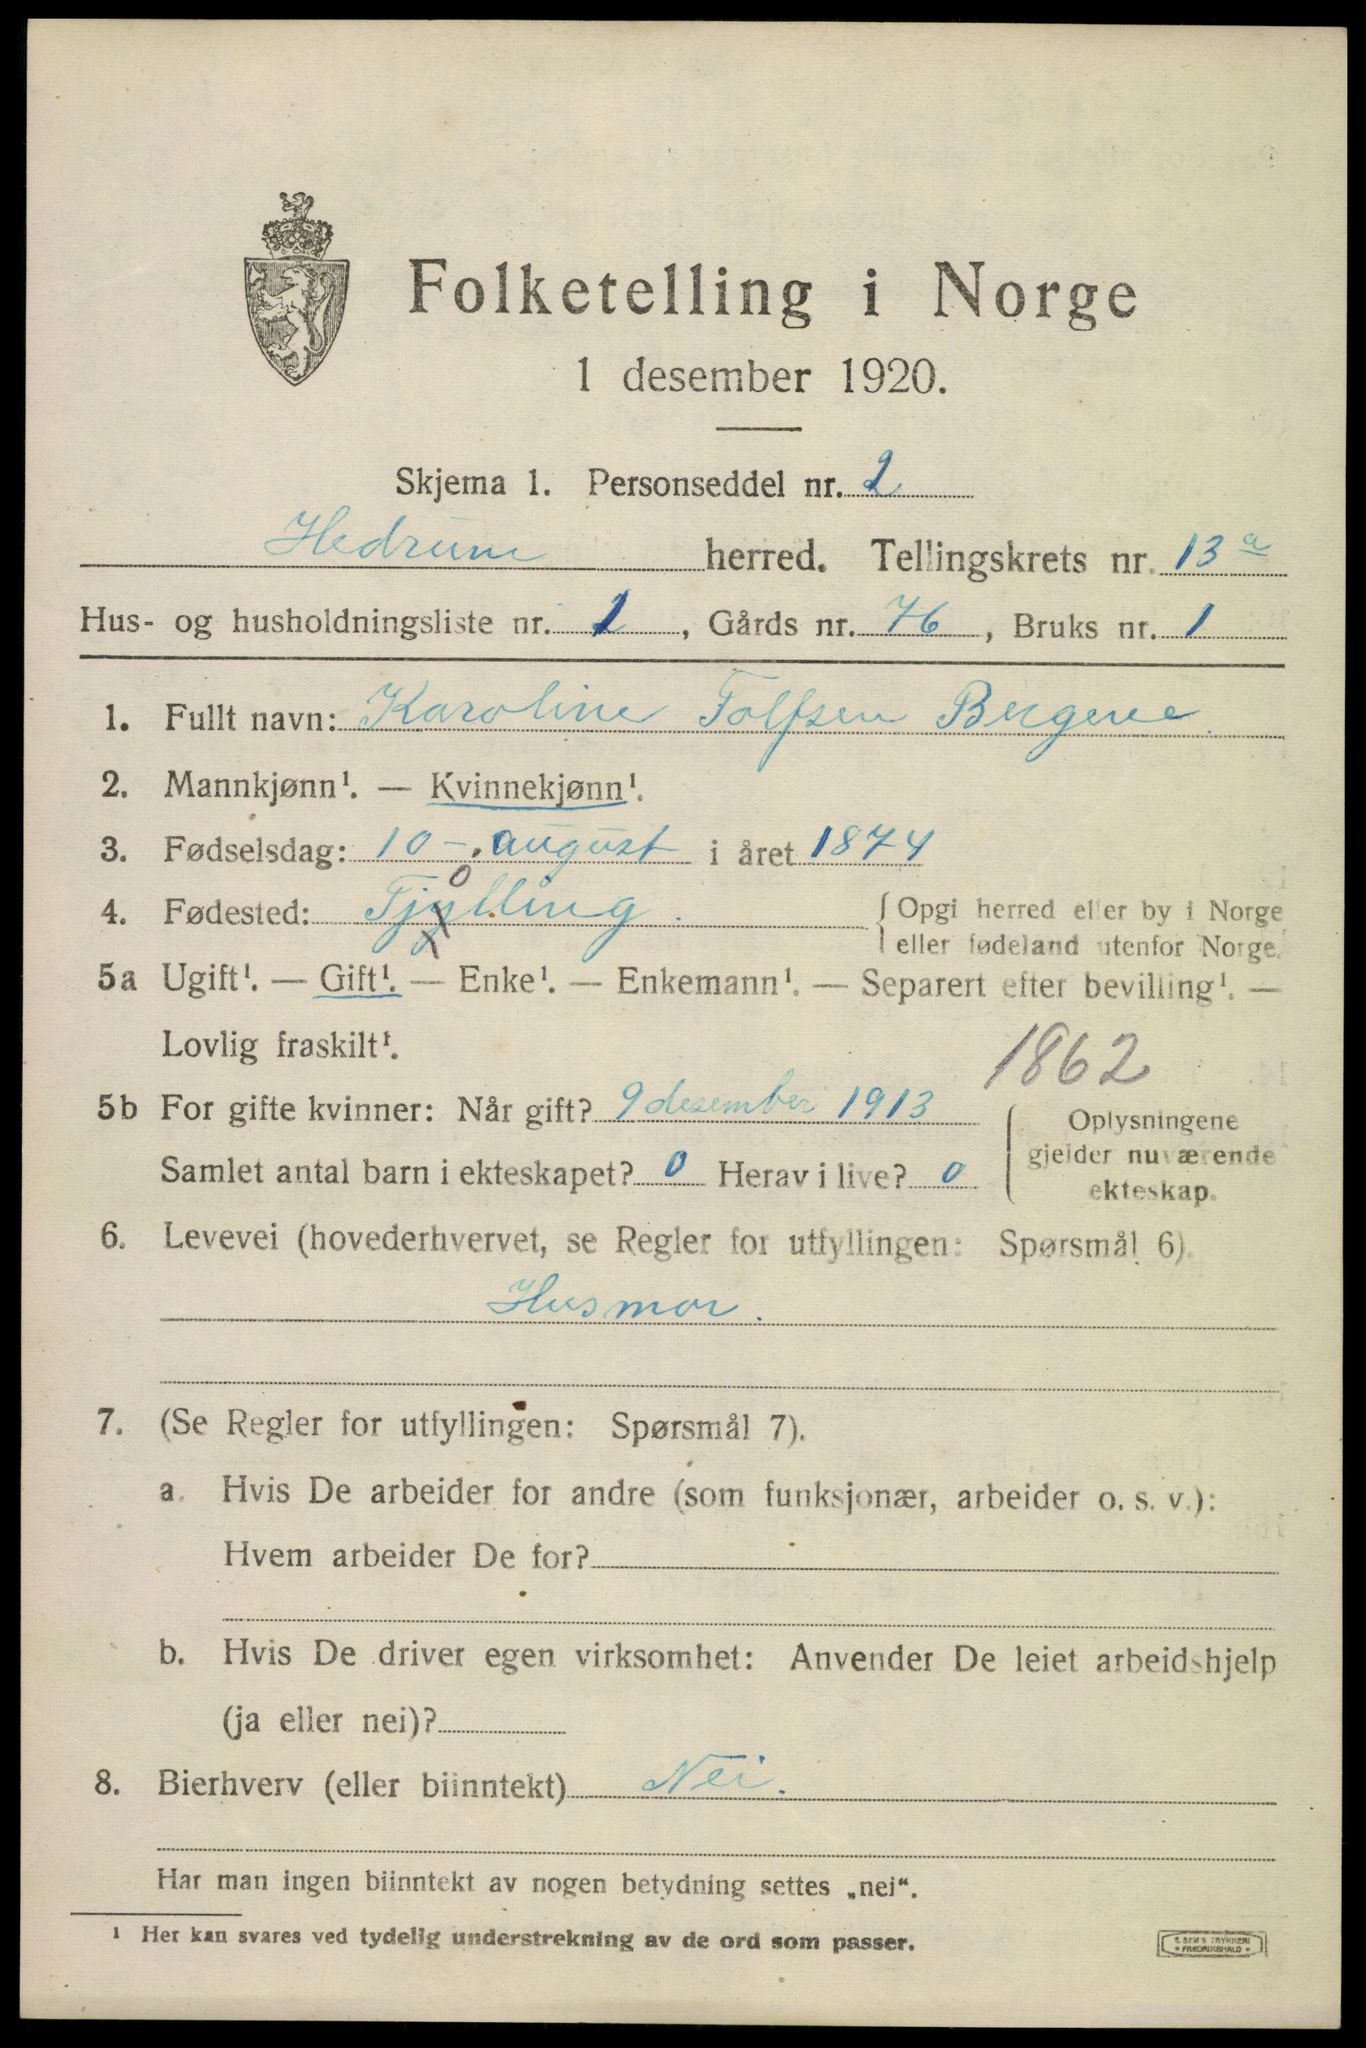 Folketelling i Norge
1 desember 1920.
Skjema 1. Personseddel nr. 2
Hedrum herred. Tellingskrets nr. 13 a
Hus- og husholdningsliste nr. 1, Gårds nr. 76, Bruks nr. 1
1. Fullt navn: Karoline Tolfsen Bergene.
2. Mannkjønn¹. — Kvinnekjønn¹.
3. Fødselsdag: 10 - august i året 1874
4. Fødested: Tjølling. { Opgi herred eller by i Norge
eller fødeland utenfor Norge.
5a Ugift¹. — Gift¹. — Enke¹. — Enkemann¹. — Separert efter bevilling¹. —
Lovlig fraskilt¹.
1862
5b For gifte kvinner: Når gift? 9 desember 1913
Samlet antal barn i ekteskapet? 0 Herav i live? 0
Oplysningene
gjelder nuværende
ekteskap.
6. Levevei (hovederhvervet, se Regler for utfyllingen: Spørsmål 6).
Husmor.
7. (Se Regler for utfyllingen: Spørsmål 7).
a. Hvis De arbeider for andre (som funksjonær, arbeider o. s. v.):
Hvem arbeider De for?
b. Hvis De driver egen virksomhet: Anvender De leiet arbeidshjelp
(ja eller nei)?
8. Bierhverv (eller biinntekt) Nei.
Har man ingen biinntekt av nogen betydning settes „nei“.
¹ Her kan svares ved tydelig understrekning av de ord som passer.
E. SEM'S TRYKKERI
• FREDRIKSHALD •